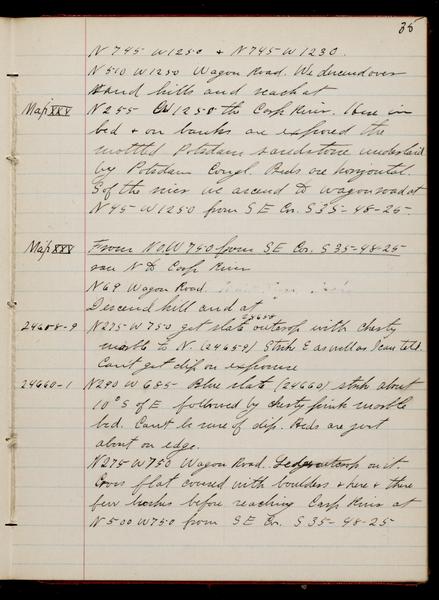 35
N 745 W 1250 & N 745 W 1230.
N 510 W 1250 Wagon Road. We descend over
sand hills and reach at
Map XXV N 255 W 1250 the Carp River. Here in
bed & on banks are exposed the
mottled Potsdam sandstone underlaid
by Potsdam Congl. Beds are horizontal.
S of the river we ascend to wagon road at
N 45 W 1250 from S E Cor. S 35-48-25.
Map XXV From N 0. W 750 from S E Cor. S 35-48-25
ran N to Carp River
N 69 Wagon Road.
Descend hill and at
24658-9 N 275 W 750 get slate 24658 outcrop with cherty
marble to N. (24659) Strike E as well as I can tell.
Can't get dip on exposure
24660-1 N 290 W 685 Blue slate (24660) strike about
10° S of E followed by cherty pink marble
bed. Can't be sure of dip. Beds are just
about on edge.
N 275 W 750 Wagon Road. Ledge outcrop on it.
Cross flat covered with boulders & here & there
few before reaching Carp River at
N 500 W 750 from S E Cor. S 35-48-25